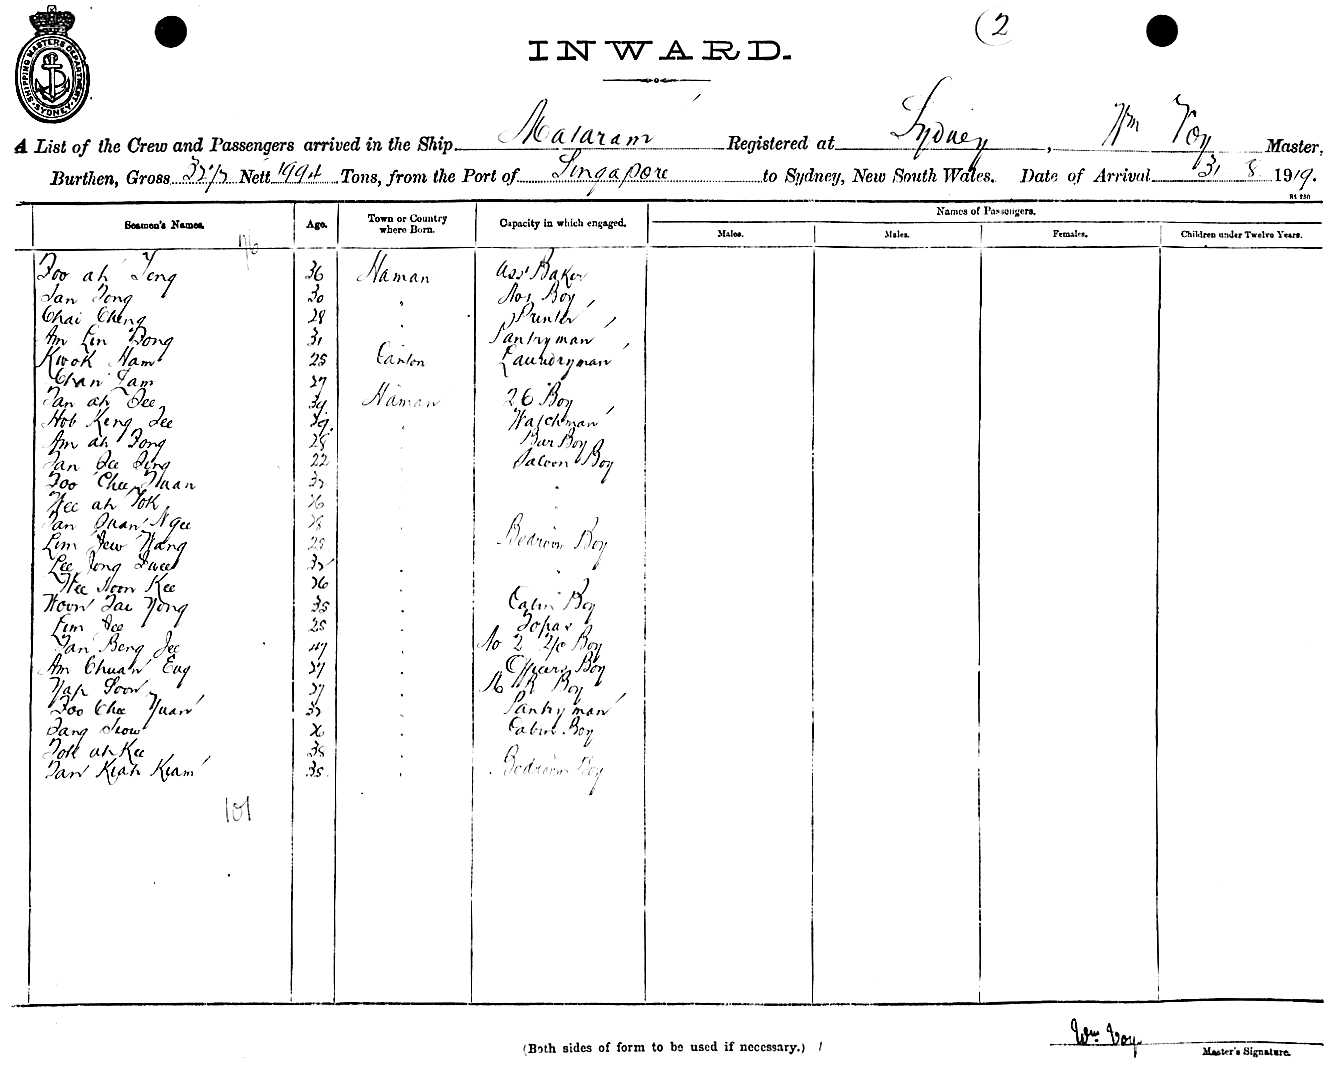 SHIPPING MASTERS DEPARTMENT SYDNEY
(2
INWARD.
A List of the Crew and Passengers arrived in the Ship Mataram Registered at Sydney, Wm Voy Master,
Burthen, Gross Nett 1994 Tons, from the Port of Singapore to Sydney, New South Wales. Date of Arrival 31 8 1919.
Seamen's Names. Age. Town or Country where Born. Capacity in which engaged. Names of Passengers.
Males. Males. Females. Children under Twelve Years.
Foo ah Teng 36 Haman Asst Baker
Tan Tong 30 " Boy
Chai Cheng 28 Printer
Am Lin Fong 31 Pantryman
Kwok Ham 25 Canton Laundryman
Chan Tam 27
Tan ah Tee 39 Haman Boy
Hob Keng Tee 39 " Watchman
Am ah Fong 28 Bar Boy
Tan Tee 22 Saloon Boy
Foo Chee Yuan "
Wee ah Tok "
Tan Quan Ngee
Lim Jew Wang 25 Bedroom Boy
Lee Tong "
Wee Hoon Kee 26 "
Woon Tai Yong 35 Cabin Boy
Lim Tee 25 Topas
Tan Beng Jee 47 No 2 Boy
Am Chuan Eng 27 Officers Boy
Yap Soon Boy
Foo Chee Yuan Pantryman
Tang Siow Cabin Boy
Tok ah Kee 38
Tan Kiah Kiam 35 Bedroom Boy
101
Wm Voy
Master's Signature.
(Both sides of form to be used if necessary.)